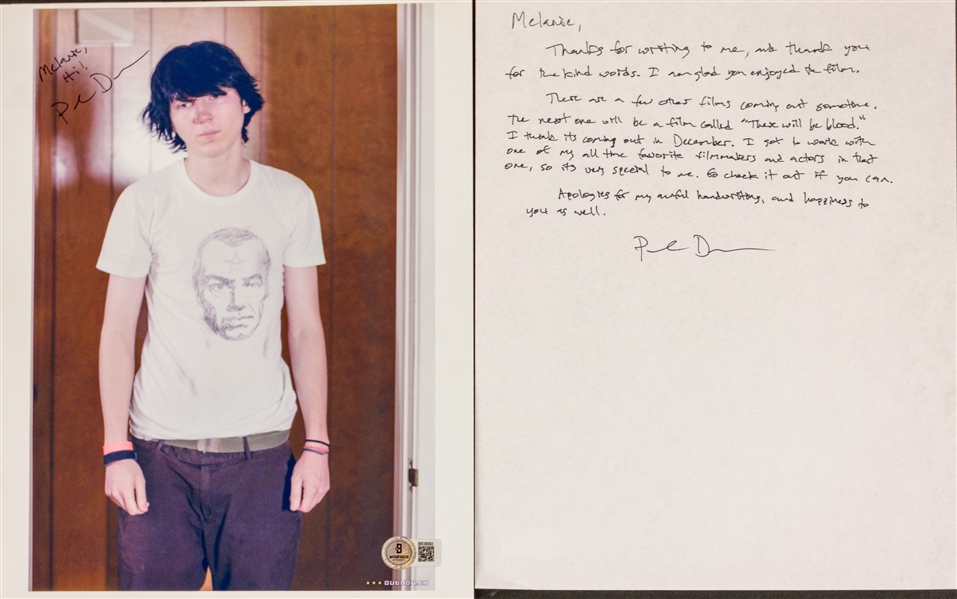 Melanie,
Hi!
P D
Melanie,
Thanks for writing to me, and thank you
for the kind words. I am glad you enjoyed the film.
There are a few other films coming out sometime.
The next one will be a film called "There will be blood."
I think its coming out in December. I got to work with
one of my all time favorite filmmakers and actors in that
one, so its very special to me. So check it out if you can.
Apologies for my awful handwriting, and happiness to
you as well.
P D